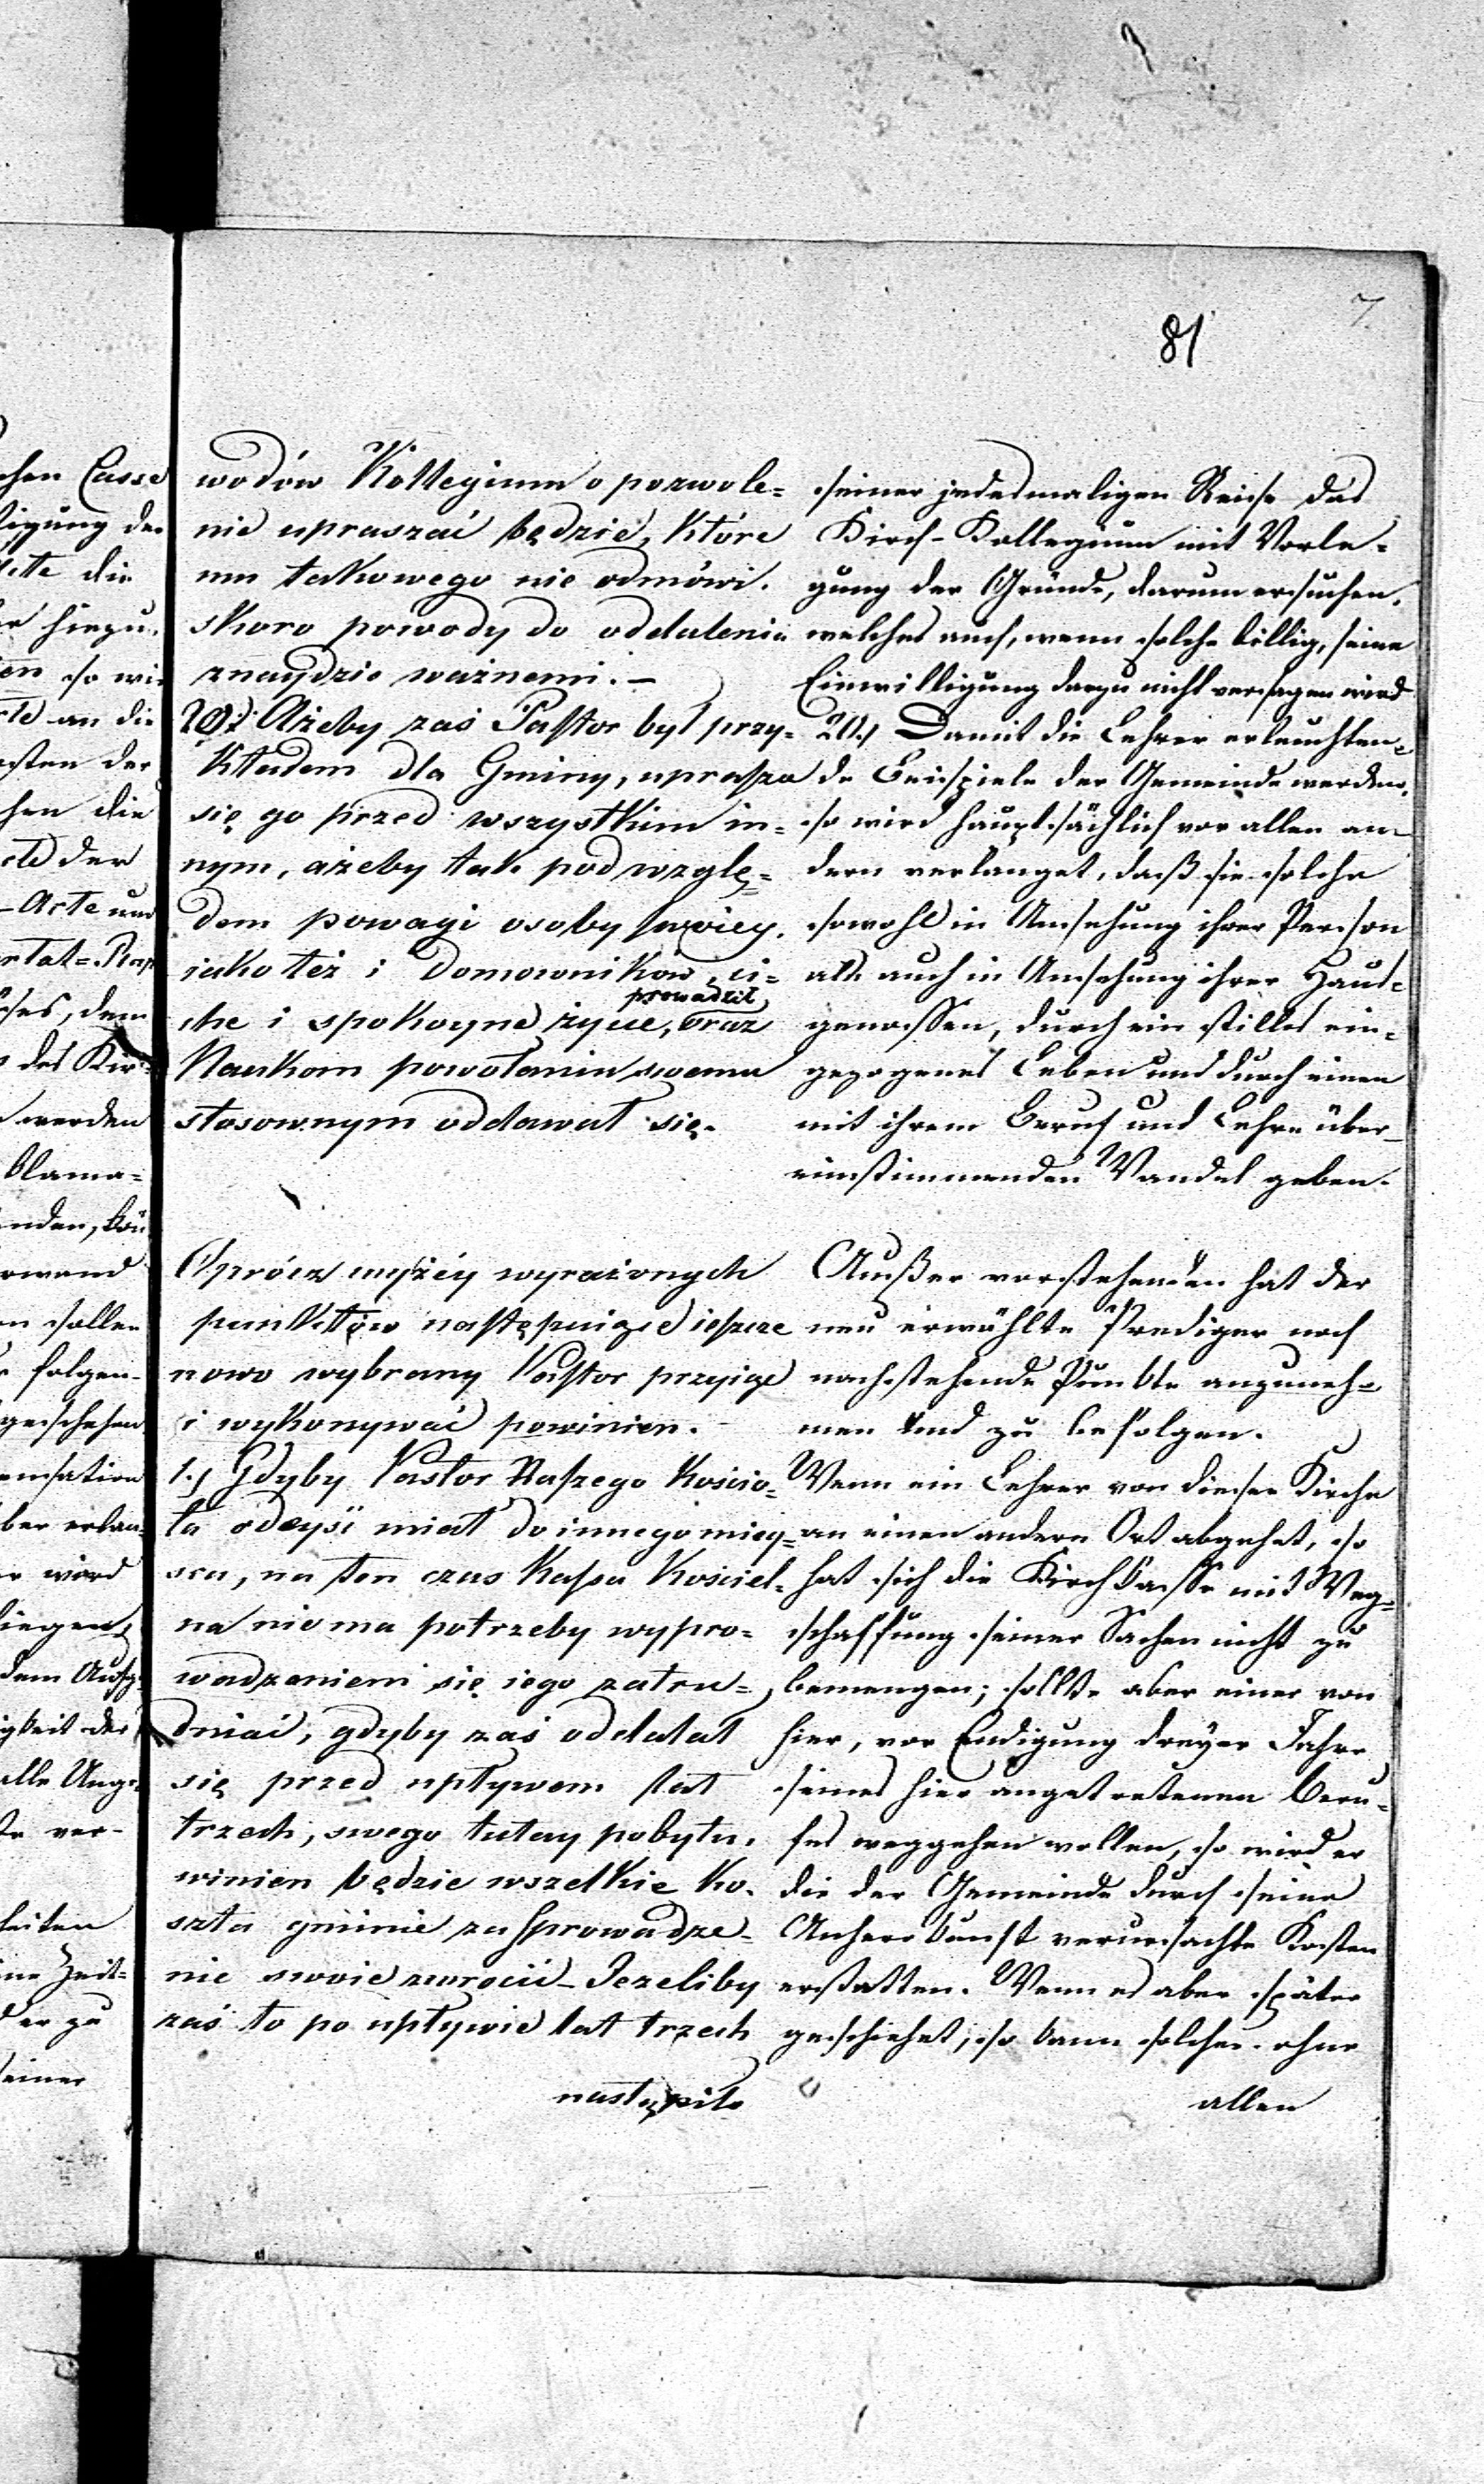 7
81
wodów Kollegium o pozwole=
nie upraszać będzie, które
mu takowego nie odmówi.
skoro powody do oddalenia
znaydzie ważnemi. —
20. Ażeby zaś Pastor był przy=
kładem dla Gminy, uprasza
się go przed wszystkim in=
nym, ażeby tak pod wzglę=
dem powagi osoby swoiey.
iako też i Domowników, ci=
prowadził
che i spokoyne życie, oraz
Naukom powołaniu swemu
stosownym oddawał się.
Oprócz wyżéy wyrażonych
punktów następuiące ieszcze
nowo wybrany Pastor przyiąć
i wykonywać powinien.
1.) Gdyby Pastor Naszego Kościo=
ła odeyść miał do innego miey=
sca, na ten czas Kassa Kościel=
na nie ma potrzeby wypro=
wadzeniem się iego zatru=
dniać, gdyby zaś oddalał
się przed upływem lat
trzech, swego tutay pobytu.
winien będzie wszelkie ko.
szta gminie za sprowadze=
nie swoie zwrócić – Jezeliby
zaś to po upływie lat trzech
nastąpiło
seiner jedesmaligen Reise das
Kirch-Kollegium mit Vorle=
gung der Gründe, darum ersuchen.
welches auch, wenn solche billig, seine
Einwilligung dazu nicht versagen wird
20.) Damit die Lehrer erleuchten=
de Beispiele der Gemeinde werden,
so wird hauptsächlich vor allen an=
dern verlanget, daß sie solche
sowohl in Ansehung ihrer Person
als auch in Ansehung ihrer Haus=
genossen, durch ein stilles ein=
gezogenes Leben und durch einen
mit ihrem Beruf und Lehre über=
einstimmenden Wandel geben.
Außer vorstehenden hat der
neu erwählte Prediger noch
nachstehende Punkte anzuneh=
men und zu befolgen.
Wenn ein Lehrer von dieser Kirche
an einen andern Ort abgehet, so
hat sich die Kirchkasse mit Weg=
schaffung seiner Sachen nicht zu
bemengen; sollte aber einer von
hier, vor Endigung dreyer Jahre
seines hier angetretenen Beru=
fes weggehen wollen, so wird er
die der Gemeinde durch seine
Anherokunft verursachte Kosten
erstatten. Wenn es aber später
geschiehet, so kann solcher ohne
allen